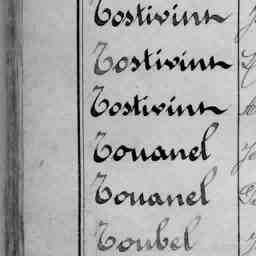 Tostivint
Tostivint
Tostivint
Touanel
Touanel
Toubel